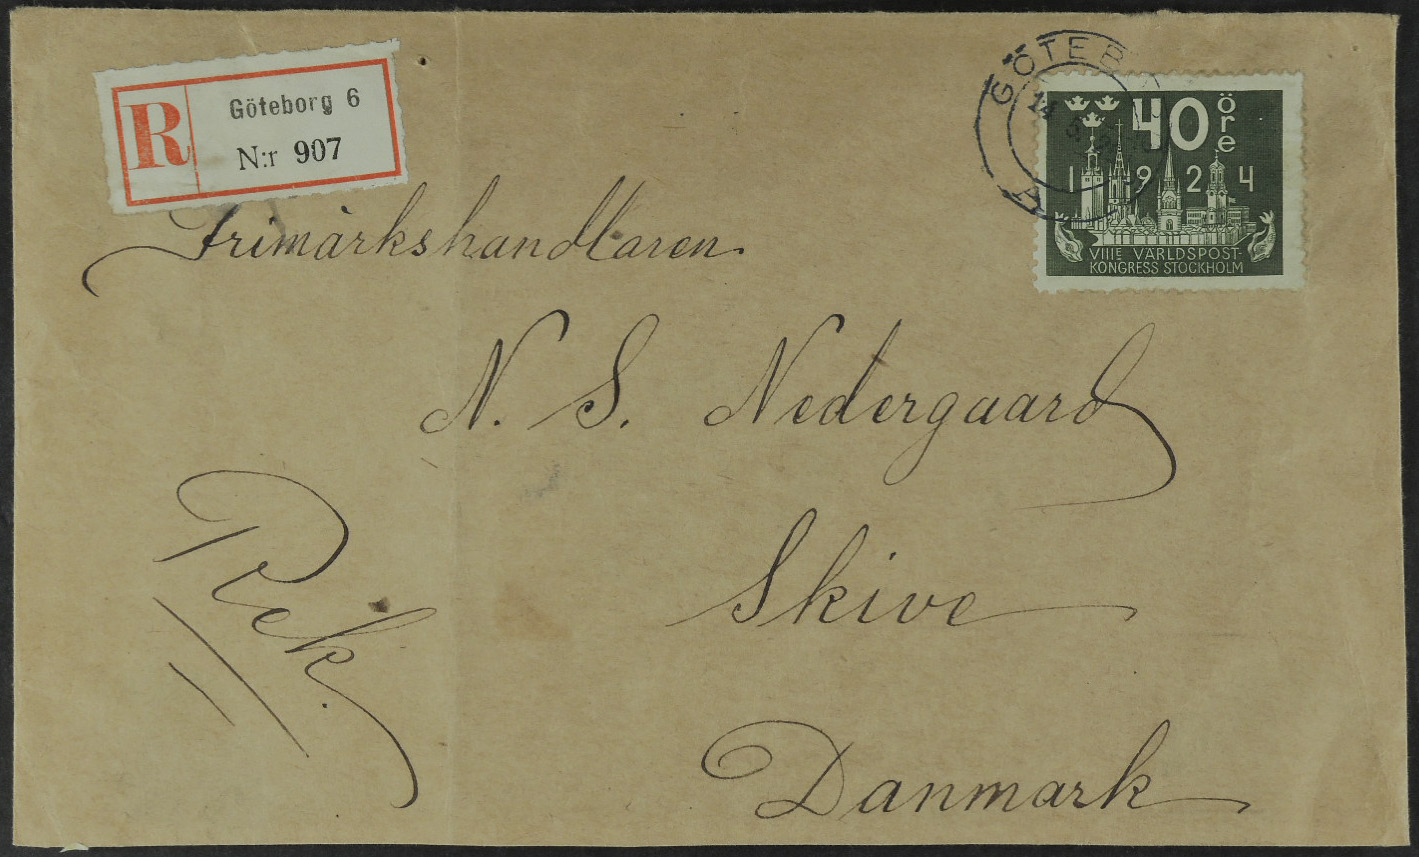 R
Göteborg 6
N:r 907
GÖTEB
14 5
A
40 öre
1924
VIIIE VÄRLDSPOST-
KONGRESS STOCKHOLM
Frimärkshandlaren
N. S. Nedergaard
Skive
Rek.
Danmark